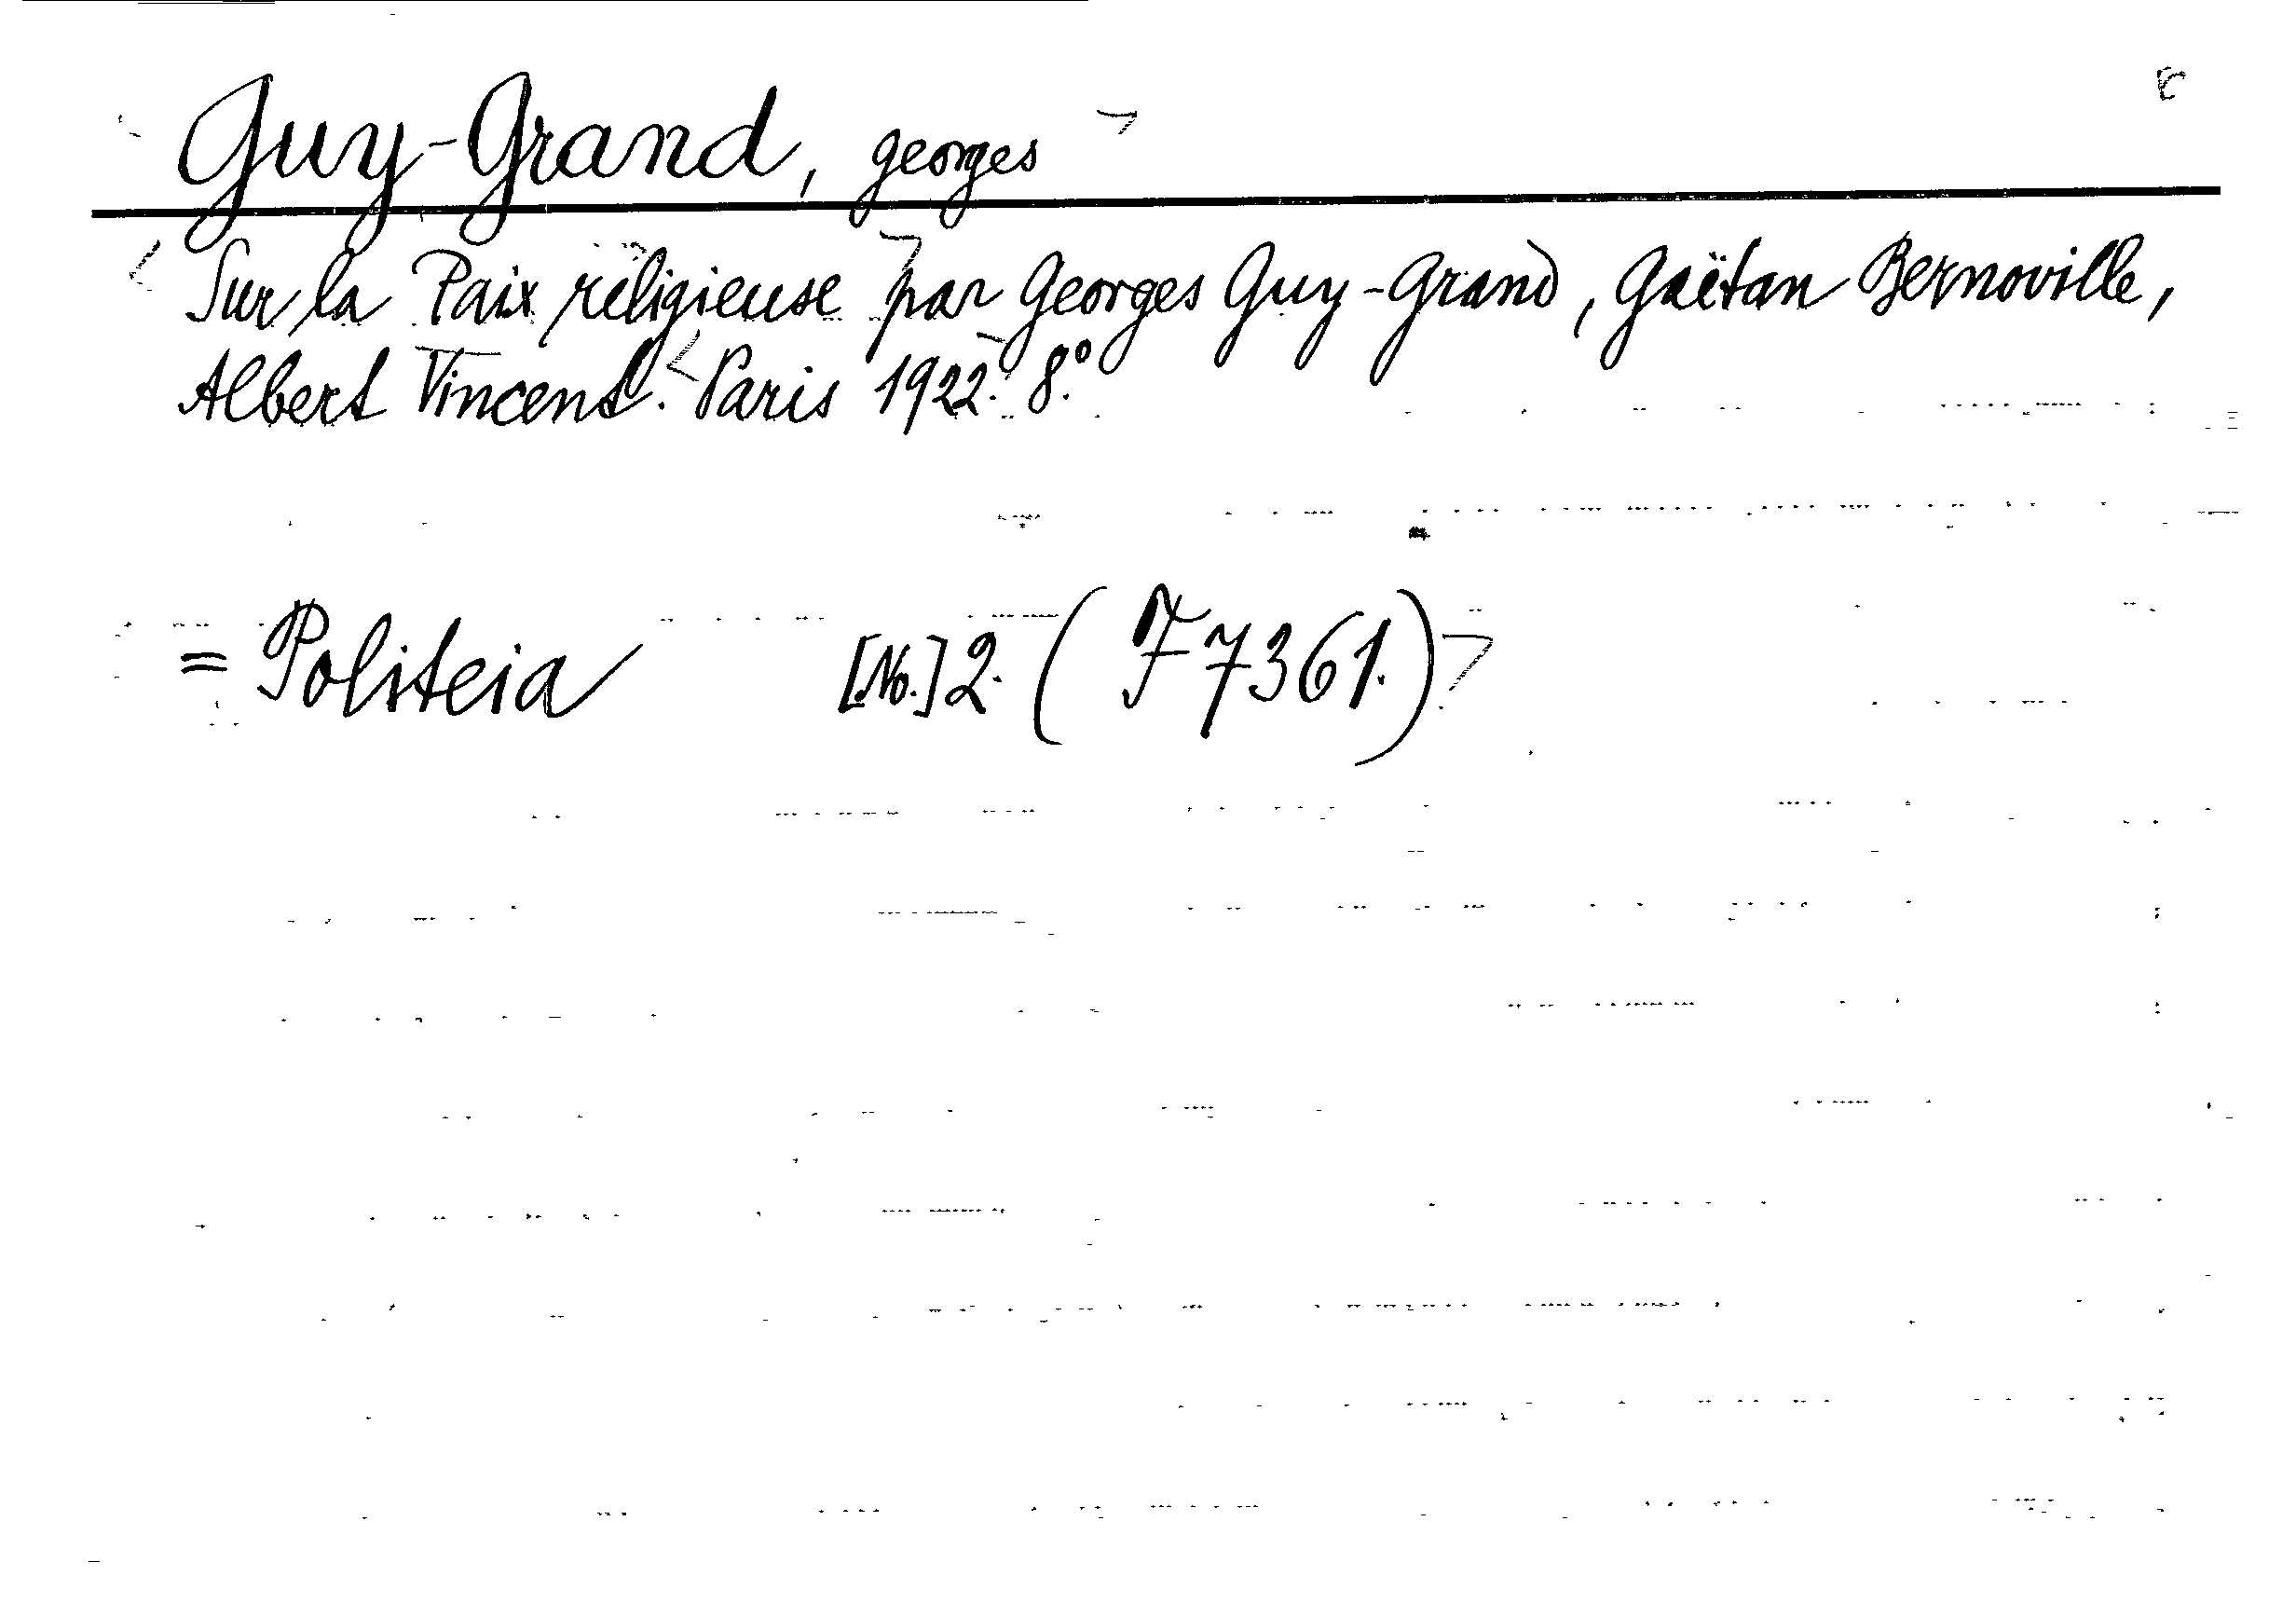 Guy-Grand, Georges
Sur la Paix religieuse par Georges Guy-Grand, Gaëtan Bernoville,
Albert Vincent. Paris 1922. 8.°
= Politeia [No.] 2. (F 7361.)